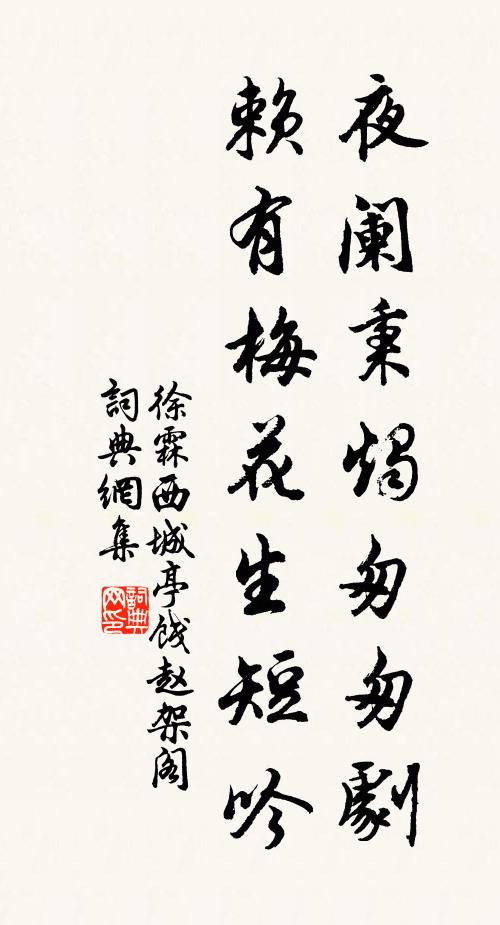 夜阑秉烛匆匆剧
赖有梅花生短吟
徐霖西城亭饯赵架阁
詞典網集
詞典网印